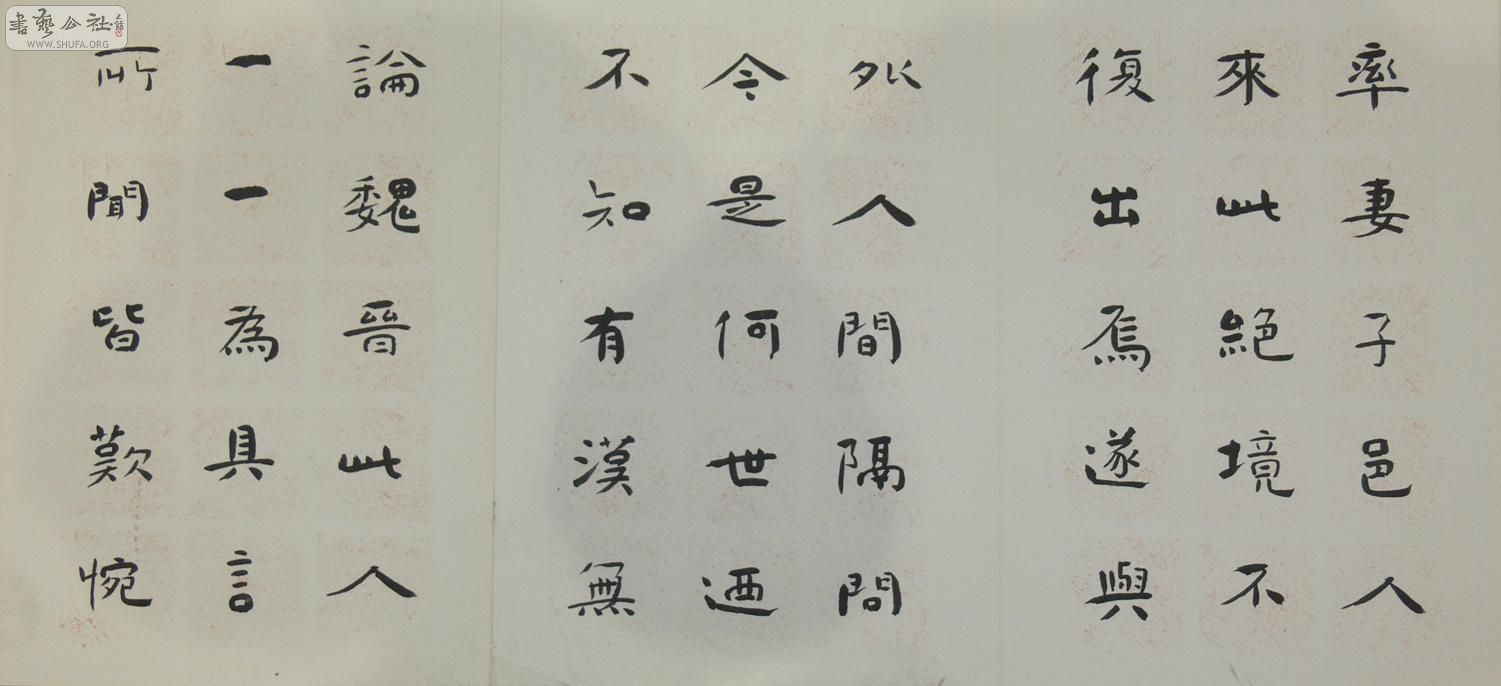 書藝公社
WWW.SHUFA.ORG
率妻子邑人
來此絕境不
復出焉遂與
外人間隔問
今是何世迺
不知有漢無
論魏晉此人
一一為具言
所聞皆歎惋